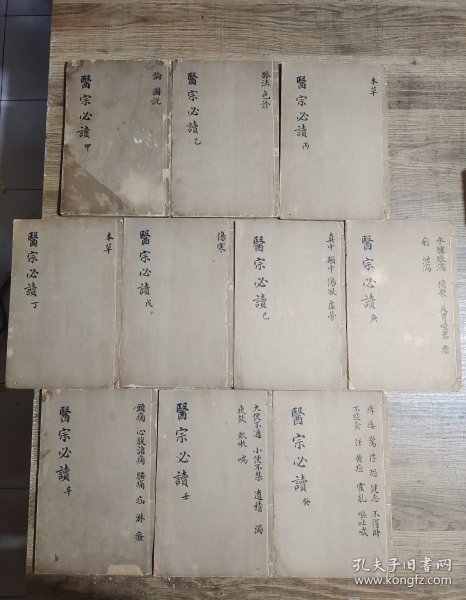 論 圖説
醫宗必讀 甲
脉法 色診
醫宗必讀 乙
本草
醫宗必讀 丙
本草
醫宗必讀 丁
傷寒
醫宗必讀 戊
真中 類中 傷風 虛勞
醫宗必讀 己
水腫脹滿 積聚
瘧 泄瀉
醫宗必讀 庚
頭痛 心腹諸痛 腰痛 疝 淋
醫宗必讀 辛
大便不通 小便不禁 遺精 濁
痰飲 欬嗽 喘
醫宗必讀 壬
痺 痿 驚 悸 恐 健忘 不得卧
不能食 汗 黄疸 霍亂 嘔吐噦
醫宗必讀 癸
孔夫子旧书网
www.kongfz.com